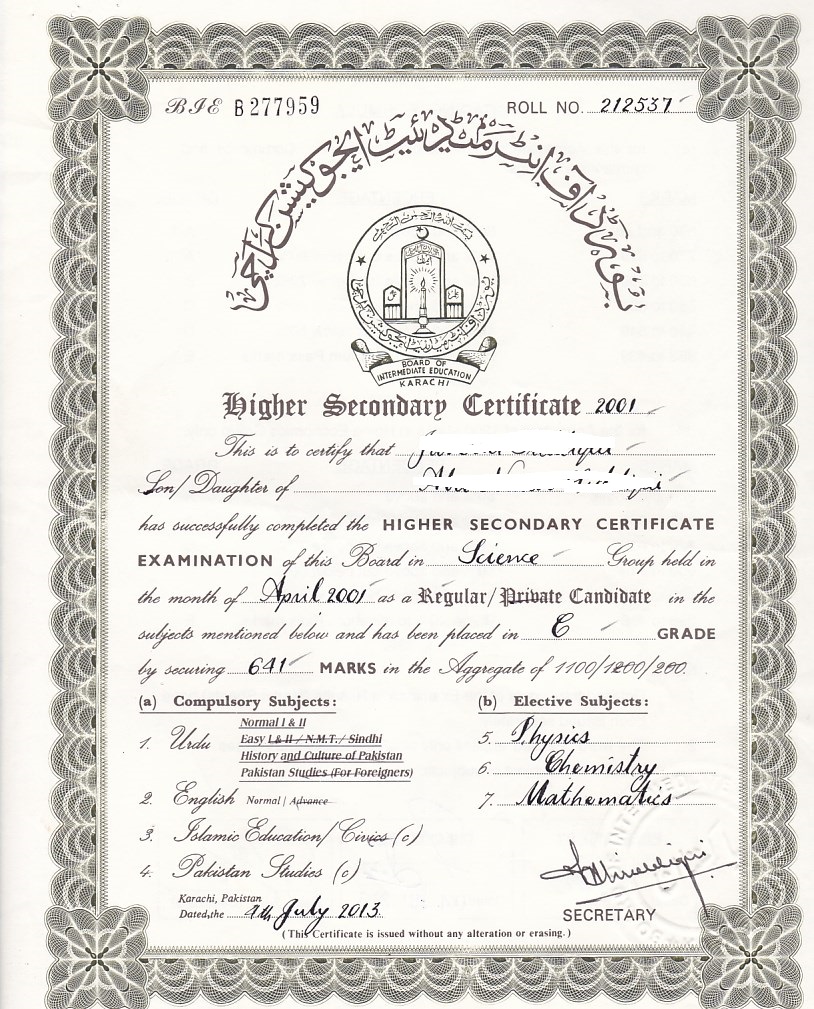 BIE B 277959 ROLL NO. 212537
بورڈ آف انٹرمیڈیٹ ایجوکیشن کراچی
BOARD OF
INTERMEDIATE EDUCATION
KARACHI
Higher Secondary Certificate 2001
This is to certify that
Son/Daughter of
has successfully completed the HIGHER SECONDARY CERTIFICATE
EXAMINATION of this Board in Science Group held in
the month of April 2001 as a Regular/Private Candidate in the
subjects mentioned below and has been placed in C GRADE
by securing 641 MARKS in the Aggregate of 1100/1200/200.
(a) Compulsory Subjects:
1. Urdu Normal I & II
Easy I & II / N.M.T. / Sindhi
History and Culture of Pakistan
Pakistan Studies (For Foreigners)
2. English Normal / Advance
3. Islamic Education/Civics (c)
4. Pakistan Studies (c)
(b) Elective Subjects:
5. Physics
6. Chemistry
7. Mathematics
Karachi, Pakistan
Dated, the 9th July 2013
SECRETARY
(This Certificate is issued without any alteration or erasing.)